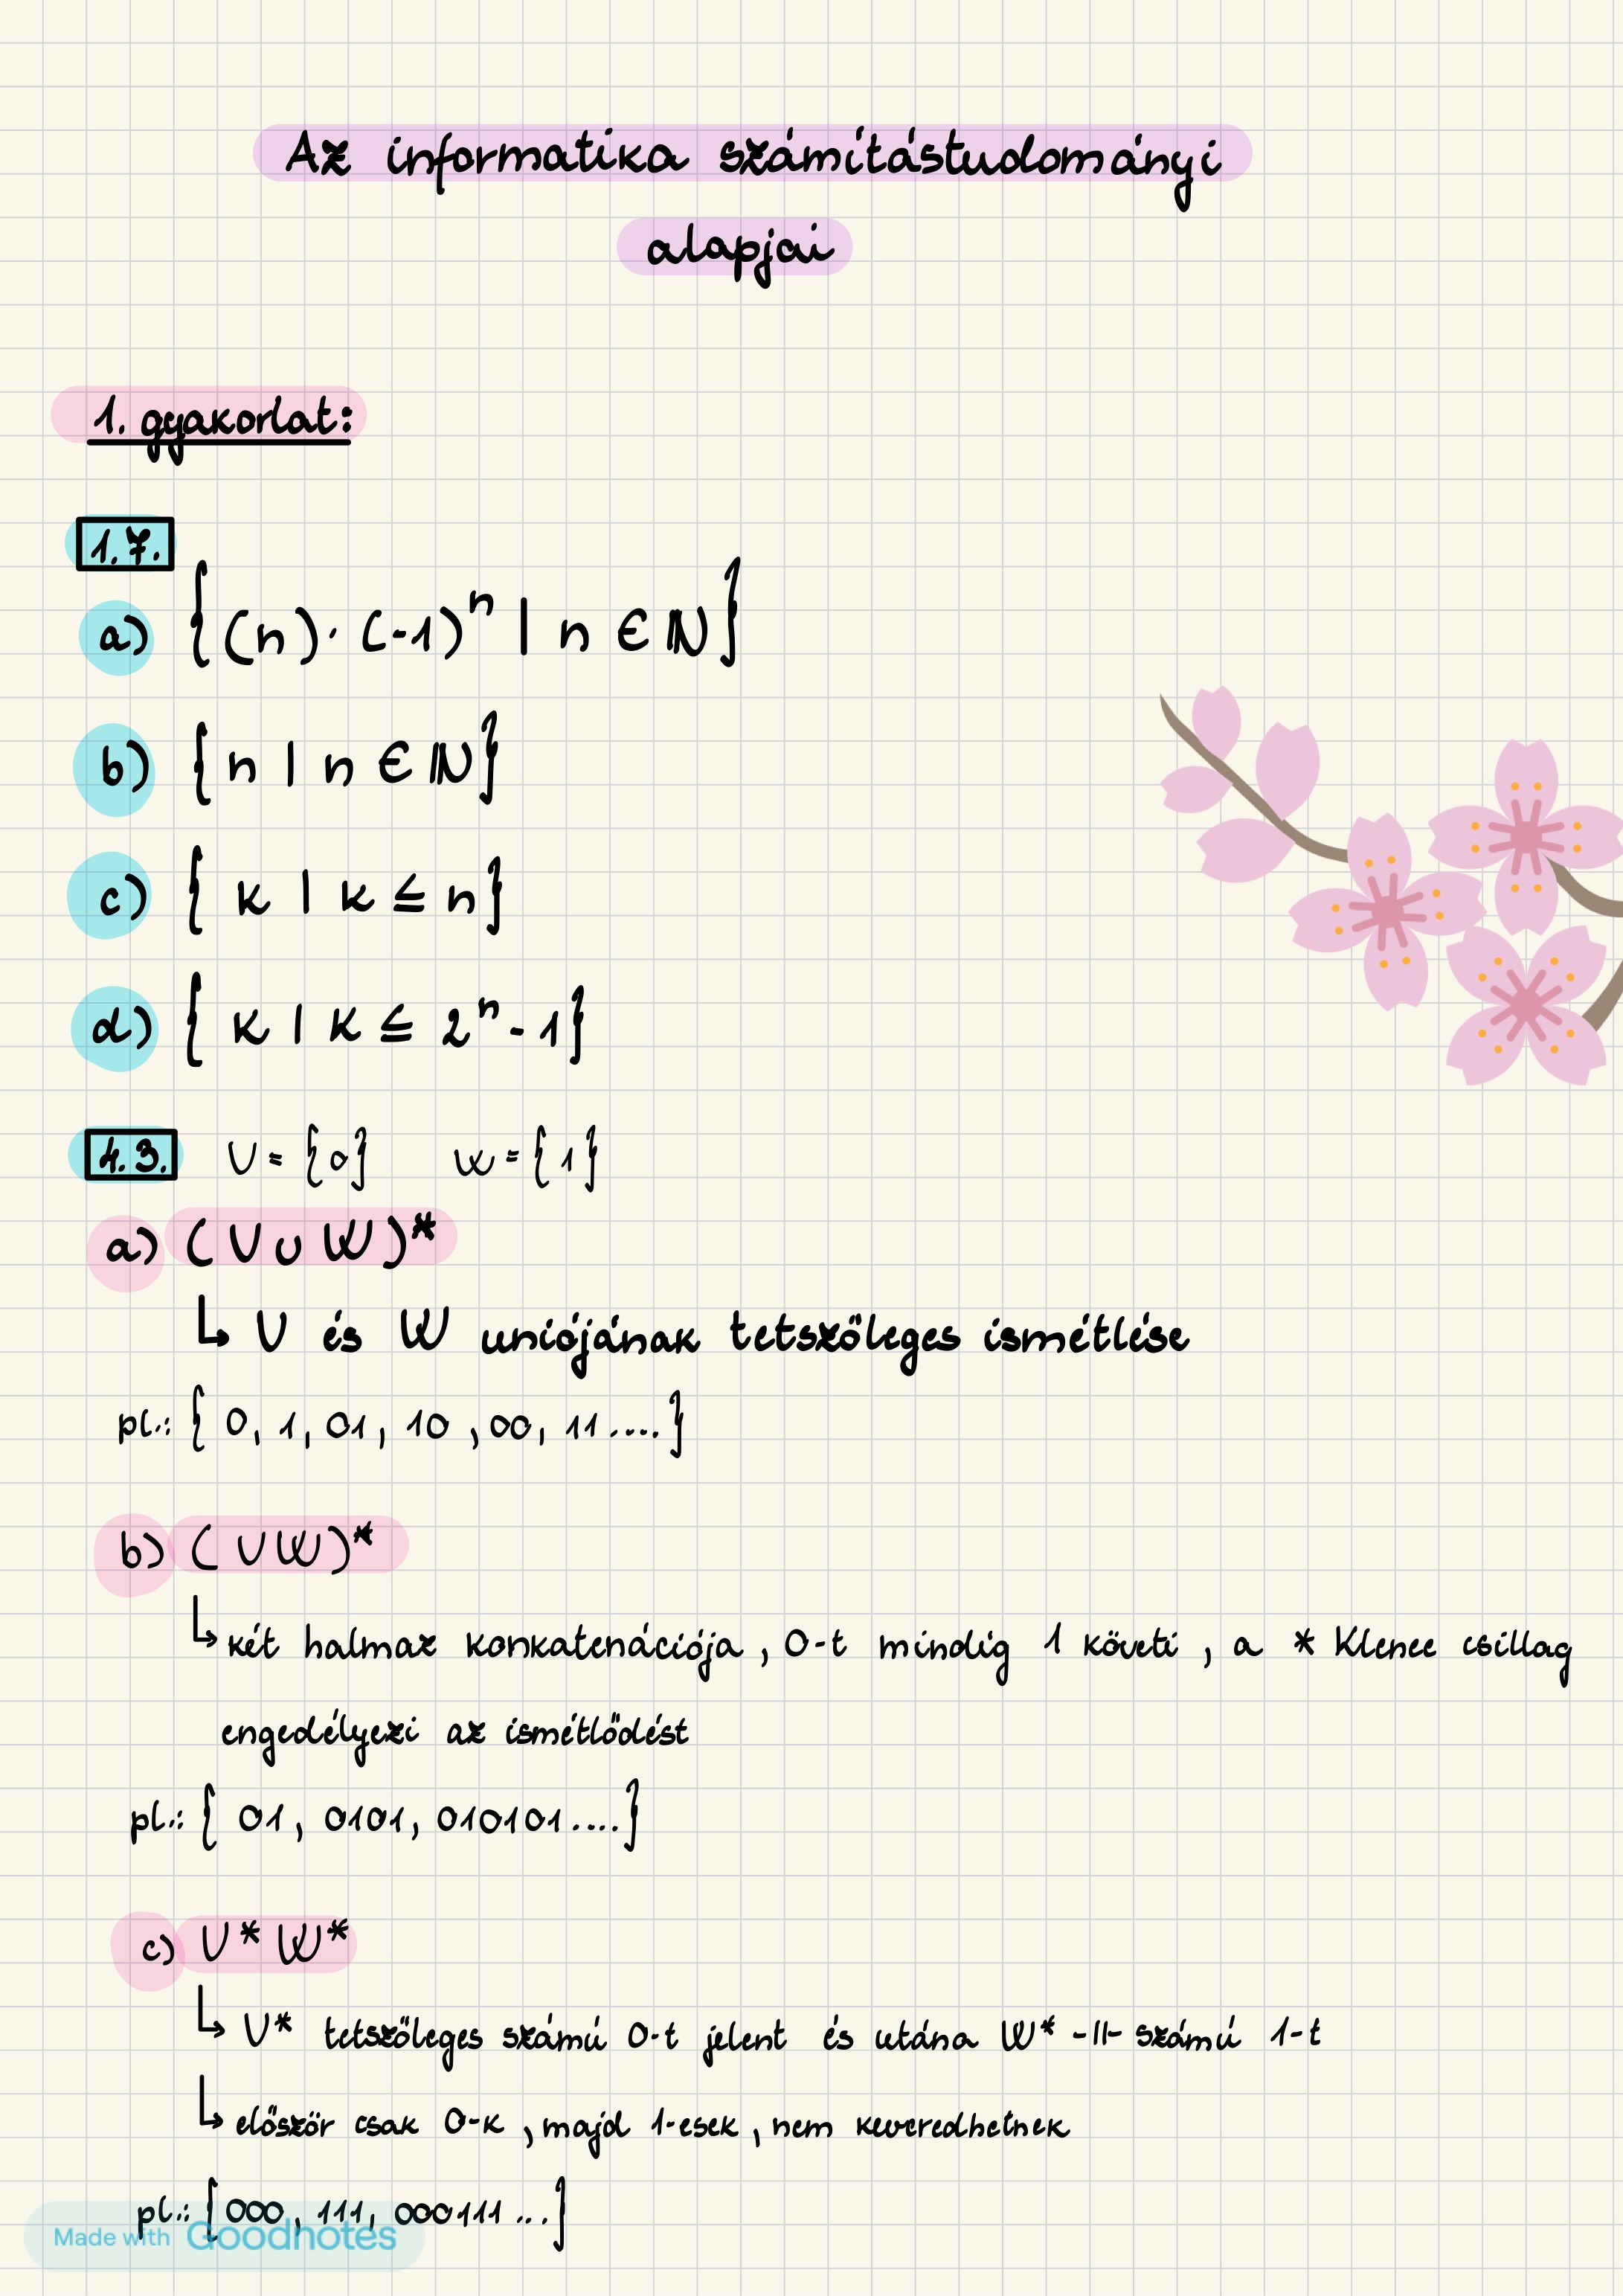 Az informatika számítástudományi
alapjai
1. gyakorlat:
1.7.
a) {(n)·(-1)ⁿ | n ∈ ℕ}
b) {n | n ∈ ℕ}
c) { k | k ≤ n}
d) { k | k ≤ 2ⁿ-1}
4.3. U = {0} W = {1}
a) (U ∪ W)*
↳ U és W uniójának tetszőleges ismétlése
pl.: { 0, 1, 01, 10, 00, 11....}
b) (UW)*
↳ két halmaz konkatenációja, 0-t mindig 1 követi, a * Klenee csillag
engedélyezi az ismétlődést
pl.: { 01, 0101, 010101....}
c) U* W*
↳ U* tetszőleges számú 0-t jelent és utána W* -II- számú 1-t
↳ először csak 0-k, majd 1-esek, nem keveredhetnek
pl.: {000, 111, 000111...}
Made with Goodnotes